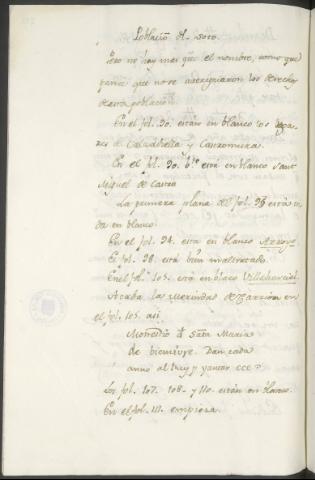 Població de Soto.
Pero no hay mas que el nombre, como que
parece que no se averiguaron los derechos
de esta población.
En el fol. 90. están en blanco los lugares
de Calzadilla y
En el fol. 90. bto está en blanco Sant
Miguel de
La primera plana del fol. 96 está to
da en blanco.
En el fol. 94. está en blanco Arroyo
El fol. 98. está bien maltratado.
En el fol. 105. está en blaco Villaharcial
Acaba la merindad de Carrion en
el fol. 105. asi
Monesterio de Santa Maria
de bienvivre. Dan cada
anno al Rey por yantar CCC
Los fol. 107. 108. y 110. están en blanco.
En el fol. 111. empieza.